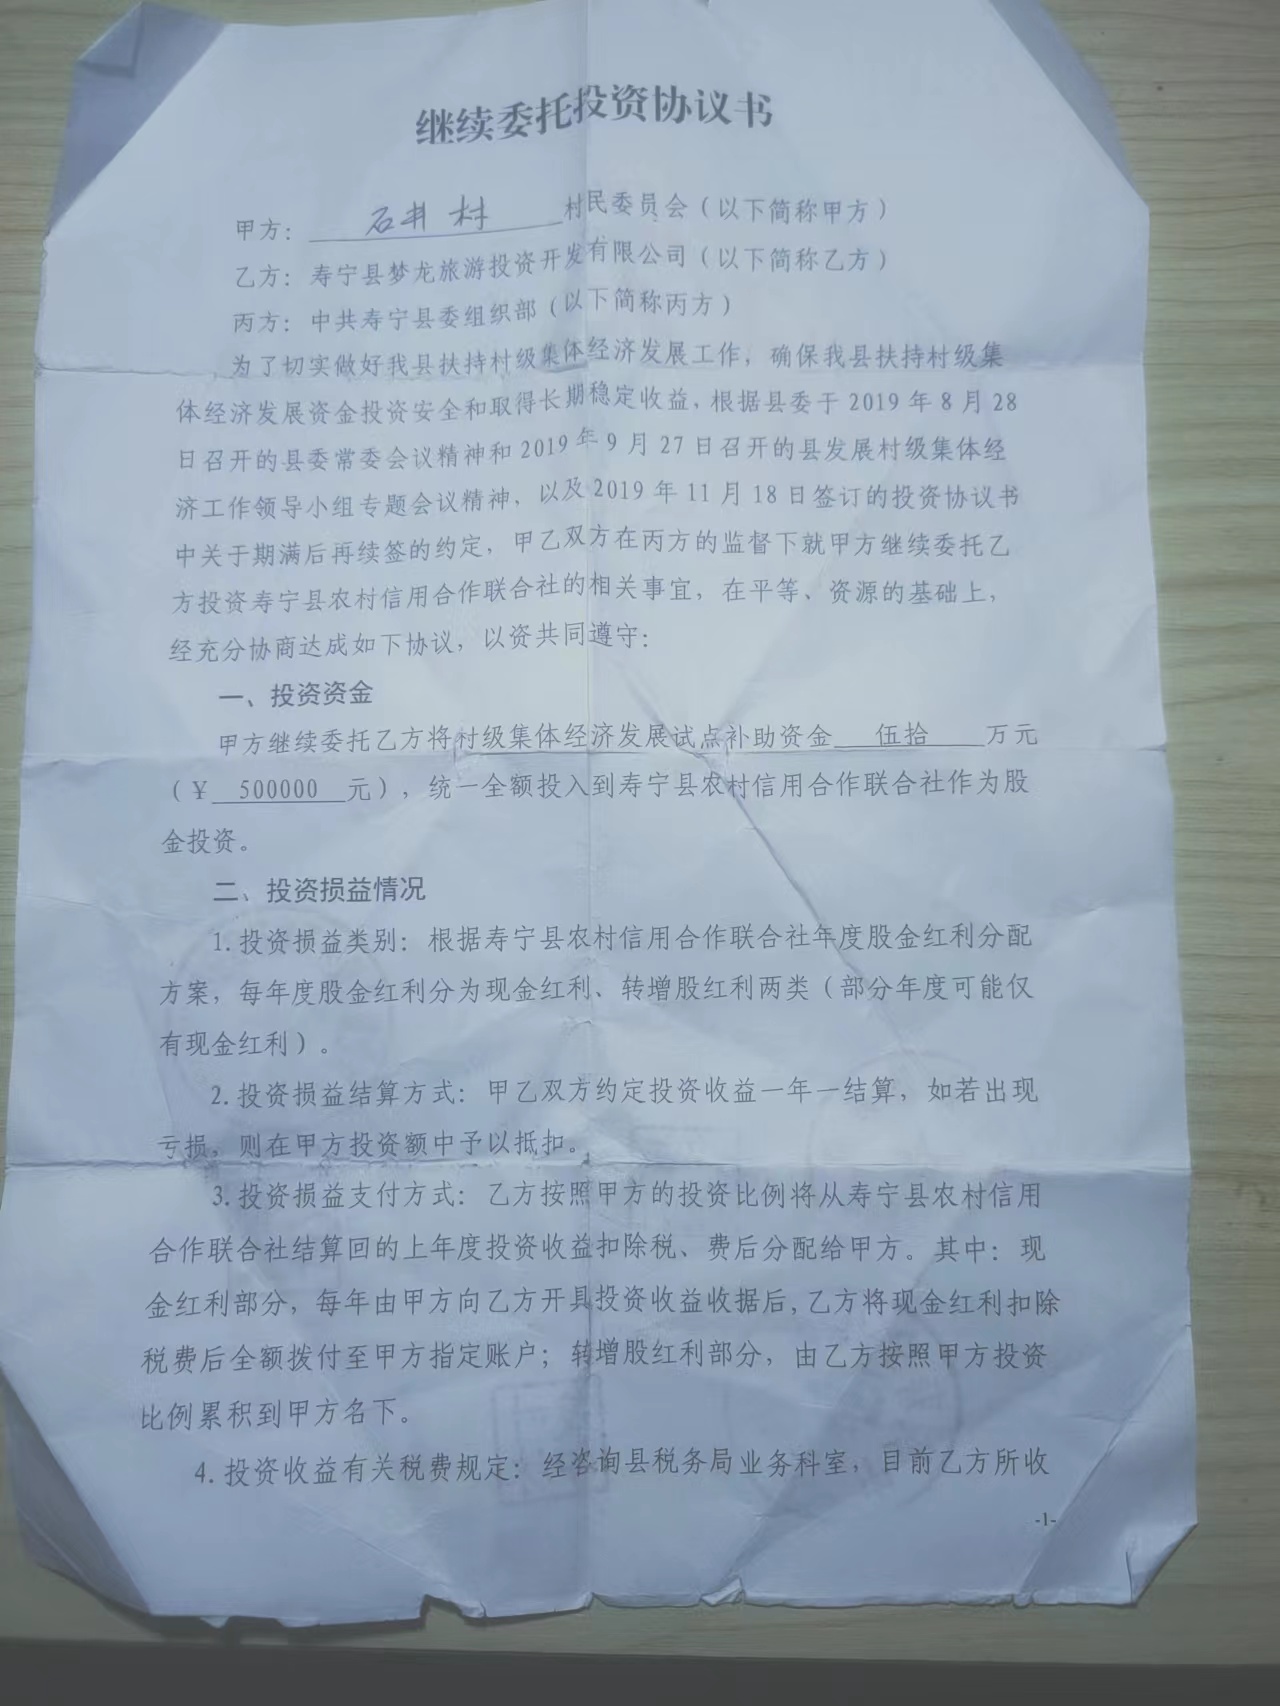 继续委托投资协议书
甲方：石井村村民委员会（以下简称甲方）
乙方：寿宁县梦龙旅游投资开发有限公司（以下简称乙方）
丙方：中共寿宁县委组织部（以下简称丙方）
为了切实做好我县扶持村级集体经济发展工作，确保我县扶持村级集
体经济发展资金投资安全和取得长期稳定收益，根据县委于 2019 年 8 月 28
日召开的县委常委会议精神和 2019 年 9 月 27 日召开的县发展村级集体经
济工作领导小组专题会议精神，以及 2019 年 11 月 18 日签订的投资协议书
中关于期满后再续签的约定，甲乙双方在丙方的监督下就甲方继续委托乙
方投资寿宁县农村信用合作联合社的相关事宜，在平等、资源的基础上，
经充分协商达成如下协议，以资共同遵守：
一、投资资金
甲方继续委托乙方将村级集体经济发展试点补助资金 伍拾 万元
（￥ 500000 元），统一全额投入到寿宁县农村信用合作联合社作为股
金投资。
二、投资损益情况
1. 投资损益类别：根据寿宁县农村信用合作联合社年度股金红利分配
方案，每年度股金红利分为现金红利、转增股红利两类（部分年度可能仅
有现金红利）。
2. 投资损益结算方式：甲乙双方约定投资收益一年一结算，如若出现
亏损，则在甲方投资额中予以抵扣。
3. 投资损益支付方式：乙方按照甲方的投资比例将从寿宁县农村信用
合作联合社结算回的上年度投资收益扣除税、费后分配给甲方。其中：现
金红利部分，每年由甲方向乙方开具投资收益收据后，乙方将现金红利扣除
税费后全额拨付至甲方指定账户；转增股红利部分，由乙方按照甲方投资
比例累积到甲方名下。
4. 投资收益有关税费规定：经咨询县税务局业务科室，目前乙方所收
-1-